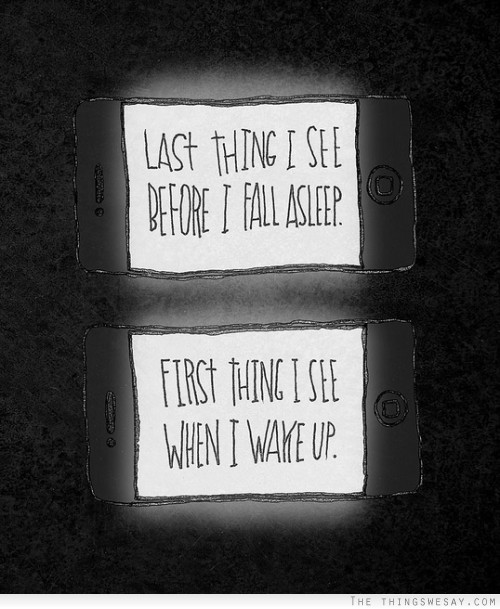 LAST THING I SEE
BEFORE I FALL ASLEEP.
FIRST THING I SEE
WHEN I WAKE UP.
THE THINGSWESAY.COM